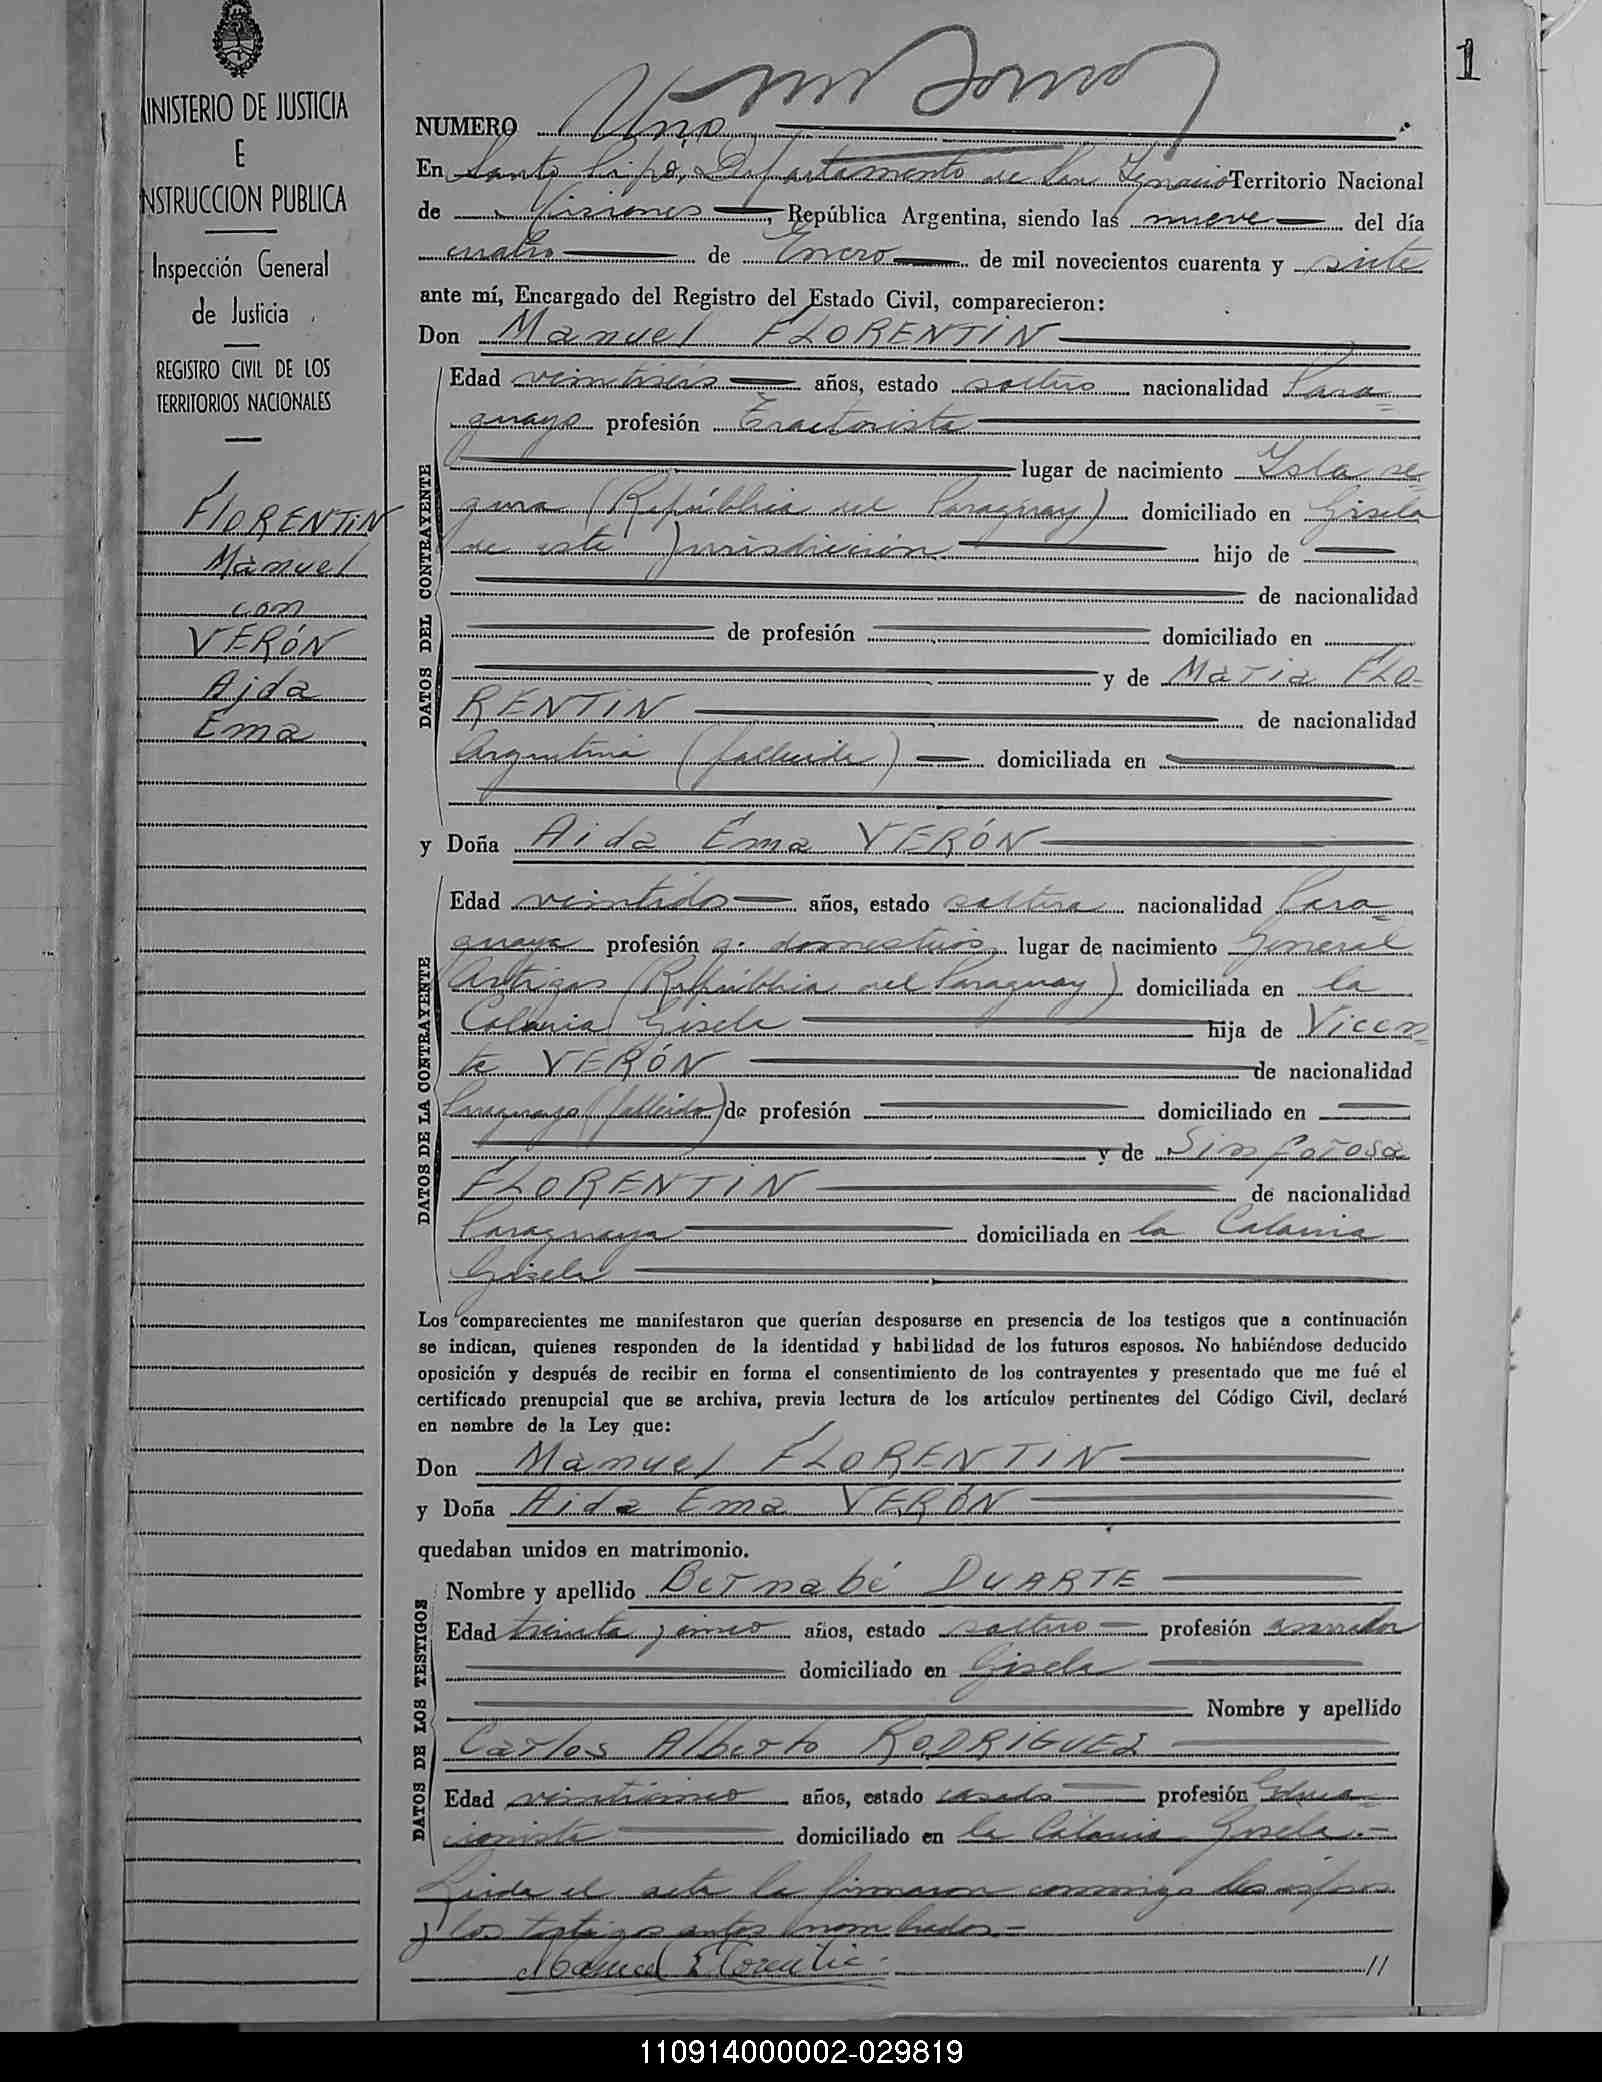 1
MINISTERIO DE JUSTICIA
E
INSTRUCCION PUBLICA
Inspección General
de Justicia
REGISTRO CIVIL DE LOS
TERRITORIOS NACIONALES
FLORENTIN
Manuel
con
VERÓN
Aida
Ema
NUMERO Uno
En Santo Pipó, Departamento de San Ignacio Territorio Nacional
de Misiones, República Argentina, siendo las nueve del día
cuatro de Enero de mil novecientos cuarenta y siete
ante mí, Encargado del Registro del Estado Civil, comparecieron:
Don Manuel FLORENTIN
DATOS DEL CONTRAYENTE
Edad veintiséis años, estado soltero nacionalidad Para=
guayo profesión Tractorista
lugar de nacimiento Isla se=
gura (República del Paraguay) domiciliado en Gisela
de esta Jurisdicción hijo de
de nacionalidad
de profesión domiciliado en
y de Maria FLO=
RENTIN de nacionalidad
Argentina (fallecida) domiciliada en
y Doña Aida Ema VERÓN
DATOS DE LA CONTRAYENTE
Edad veintidos años, estado soltera nacionalidad Para=
guaya profesión q. domesticos lugar de nacimiento General
Artigas (República del Paraguay) domiciliada en la
Colonia Gisela hija de Vicen=
te VERÓN de nacionalidad
Paraguayo (fallecido) de profesión domiciliado en
y de Sinforosa
FLORENTIN de nacionalidad
Paraguaya domiciliada en la Colonia
Gisela
Los comparecientes me manifestaron que querían desposarse en presencia de los testigos que a continuación
se indican, quienes responden de la identidad y habilidad de los futuros esposos. No habiéndose deducido
oposición y después de recibir en forma el consentimiento de los contrayentes y presentado que me fué el
certificado prenupcial que se archiva, previa lectura de los artículos pertinentes del Código Civil, declaré
en nombre de la Ley que:
Don Manuel FLORENTIN
y Doña Aida Ema VERÓN
quedaban unidos en matrimonio.
DATOS DE LOS TESTIGOS
Nombre y apellido Bernabé DUARTE
Edad treinta y cinco años, estado soltero profesión
domiciliado en Gisela
Nombre y apellido
Carlos Alberto RODRIGUEZ
Edad veinticinco años, estado casado profesión Educa=
cionista domiciliado en la Colonia Gisela.=
Leida el acta la firmaron conmigo los esposos
y los testigos antes nombrados=
Manuel Florentin
//
110914000002-029819